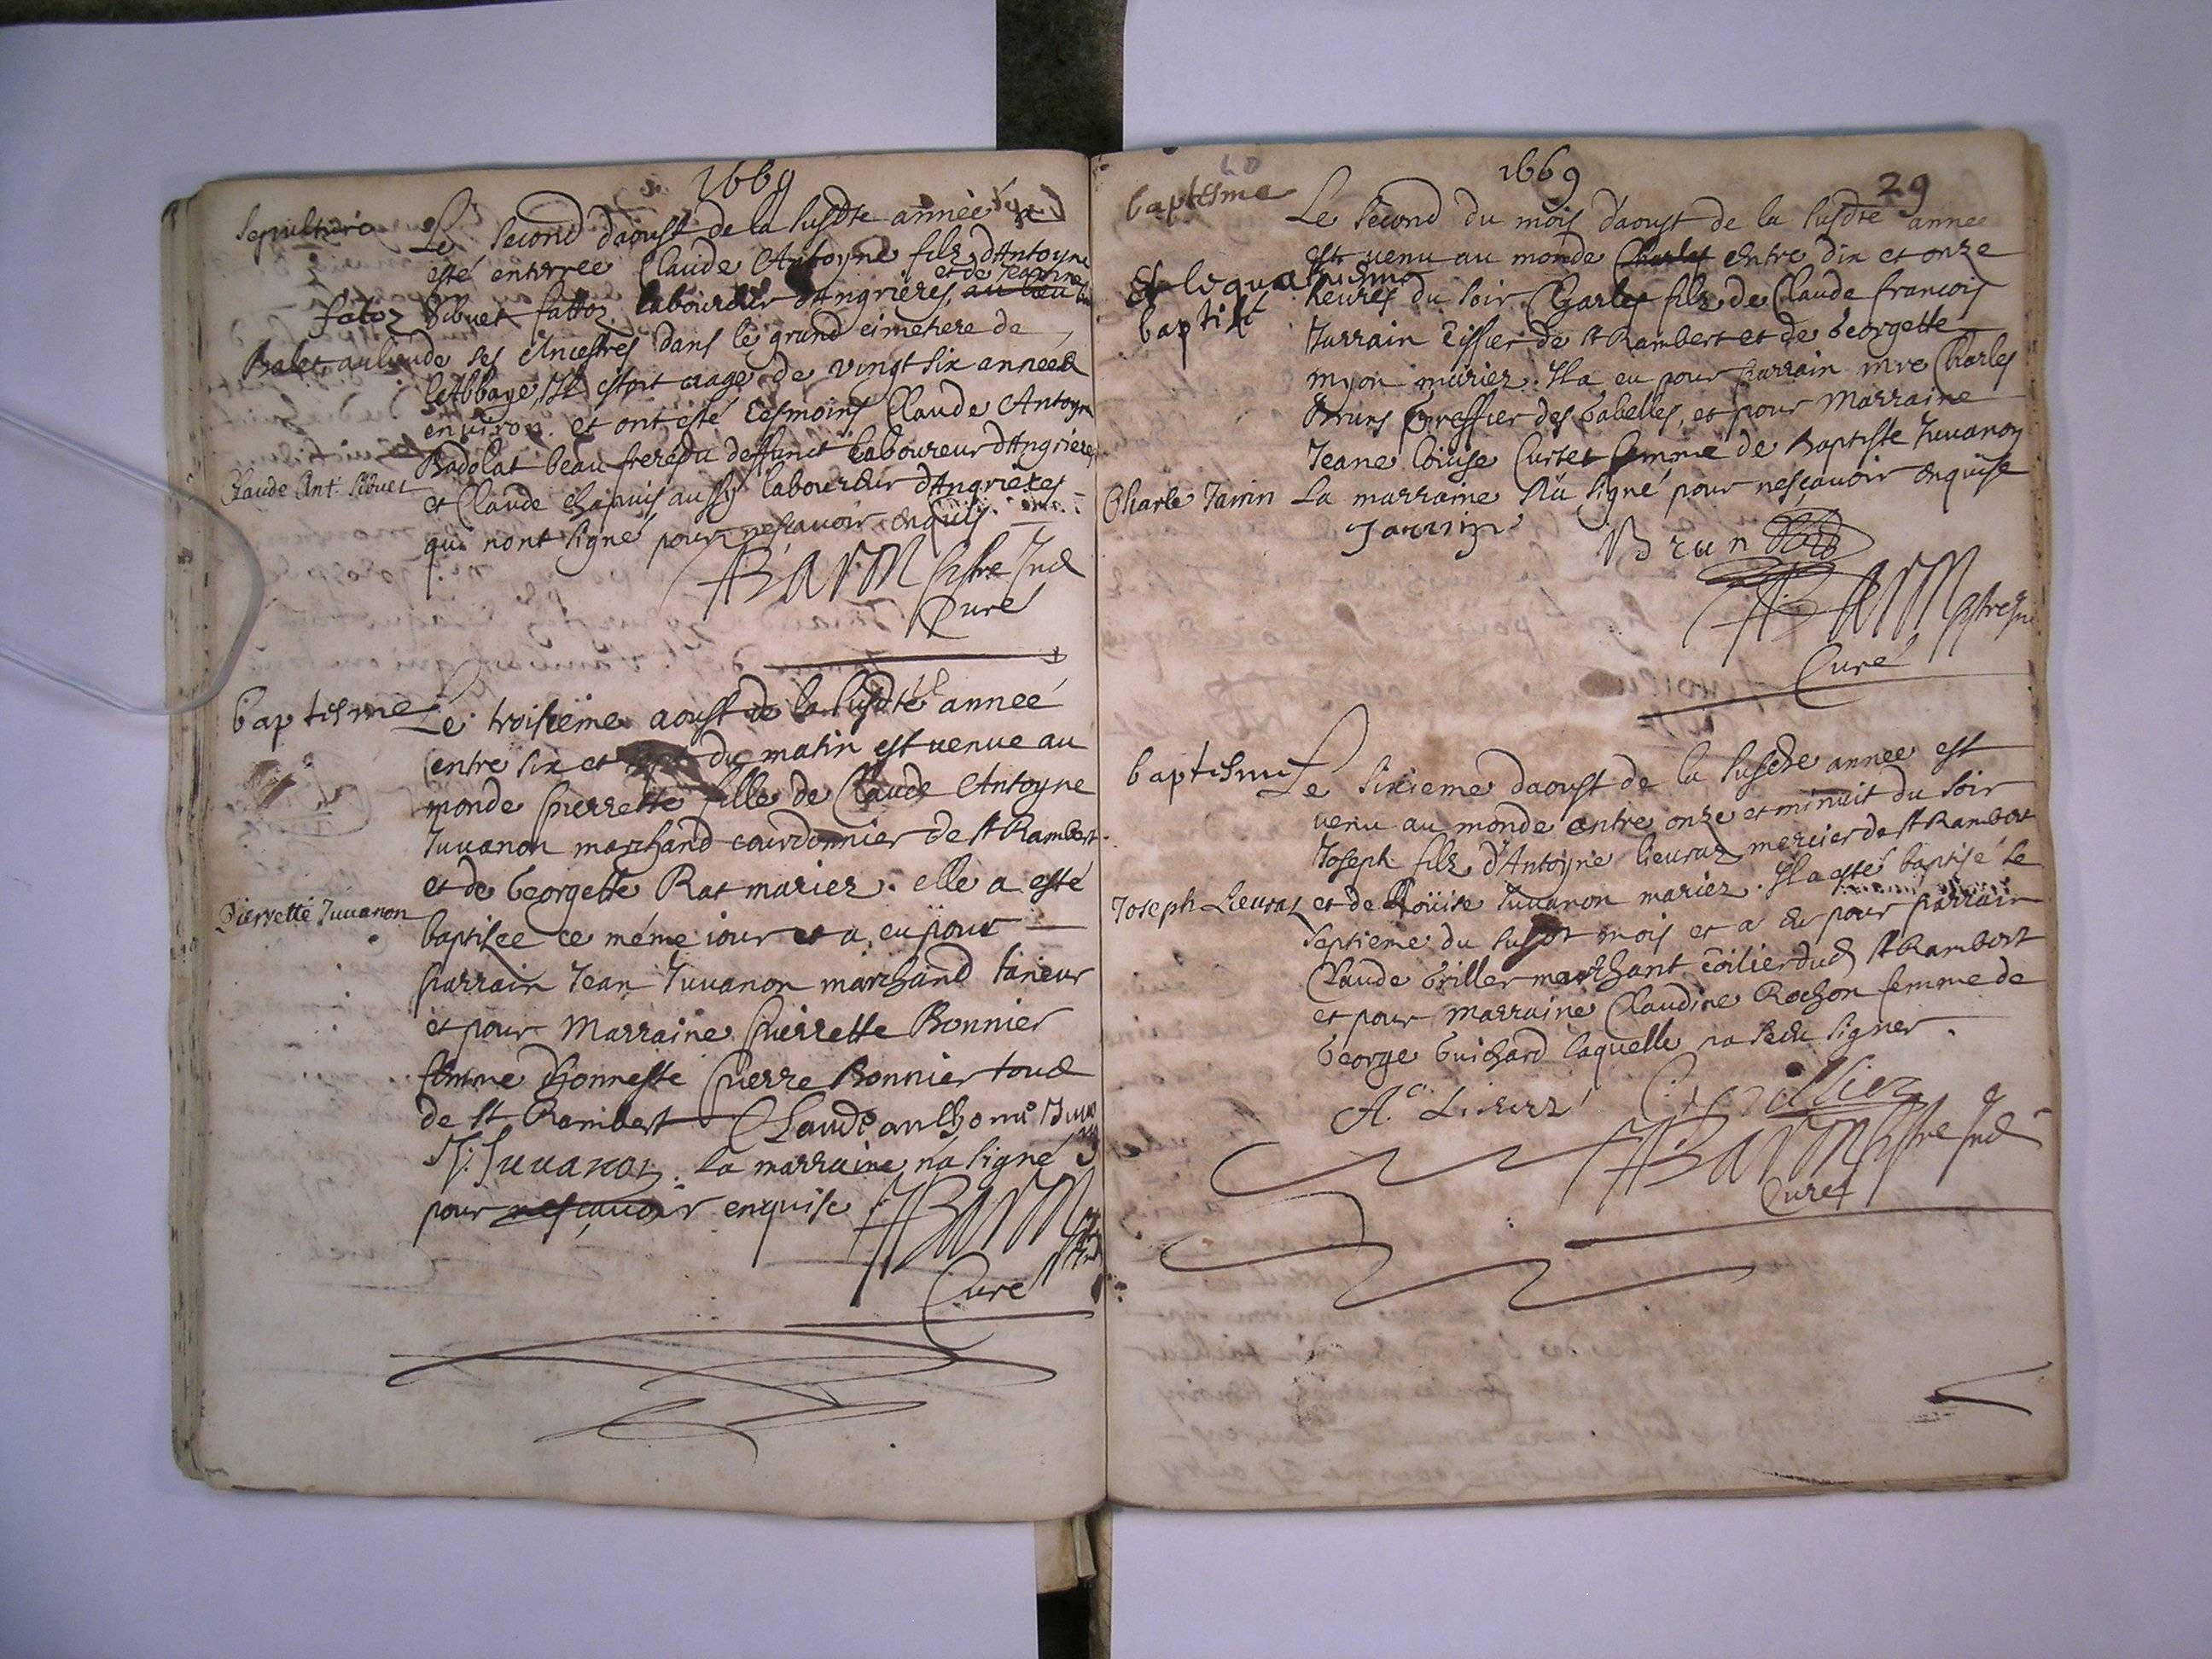 1669
Sepulture
Le second daoust de la susdte année a
esté enterree Claude Antoyne filz dAntoyne
et de Jeanne
fatoz Sibuet fattoz laboureur dAngrieres, au lieu
Balet au lieu de ses Ancestres dans le grand cimetiere de
lAbbaye, Il estoit aagé de vingt six années
environ. et ont esté tesmoins Claude Antoyne
Badolat beau frere du deffunct laboureur dAngrieres
Claude Ant. Sibuet
et Claude chapuis aussy laboureur dAngrieres
qui nont signé pour nescavoir enquis
Curé
baptesme
Le troisieme aoust de la susdte année
entre six et sept du matin est venue au
monde pierrette fille de Claude Antoyne
Juuanon marchand courdonnier de st Rambert
et de Georgette Rat mariez. elle a esté
Pierrette Juuanon
baptisee ce méme iour et a eu pour
parrain Jean Juuanon marchand taneur
et pour Marraine pierrette Bonnier
femme dhonneste pierre Bonnier tous
de st Rambert Claude anthoine Juua
J. Juuanon. La marraine na signé
pour nescavoir enquise
Curé
1669
29
60
baptesme
Le second du mois daoust de la susdte annee
est venu au monde Charles entre dix et onze
Et le quatriesme
baptisé
heures du soir Charles filz de Claude francois
Jarrain tissier de st Rambert et de Georgette
myon mariez. Il a eu pour parrain mre Charles
Brun greffier des Gabelles, et pour Marraine
Jeane loiuse Curtet femme de Baptiste Juuanon
Charle Jarrin
La marraine na signé pour nescavoir enquise
Jarrin
Brun
Curé
baptesme
Le sixieme daoust de la susdte annee est
venu au monde entre onze et minuit du soir
Joseph filz d'Antoyne lieuraz mercier de st Rambert
Joseph Lieuraz
et de Loüise Juuanon mariez. Il a esté baptisé le
septieme du susdt mois et a eu pour parrain
Claude Griller marchant toilier dud st Rambert
et pour marraine Claudine Rochon femme de
George Guichard laquelle na sceu signer.
Curé